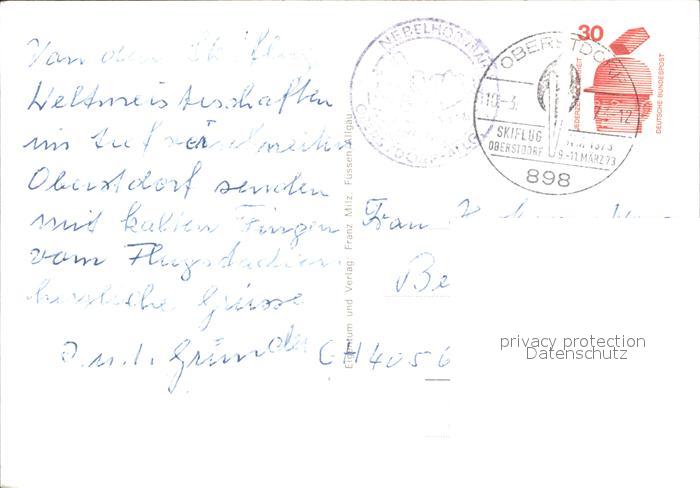 Von den Ski flug
Weltmeisterschaften
im tief verschneiten
Oberstdorf senden
mit kalten Fingen
vom Flugstadion
herzliche Grüsse
J. u. L. Gründer
Eigentum und Verlag Franz Milz, Füssen/Allgäu
NEBELHORNBAHN
OBERSTDORF/ALLG.
OBERSTDORF
10.-3. 73-12
SKIFLUG W.M. 1973
OBERSTDORF 9.-11.MÄRZ 73
898
30
JEDERZEIT SICHERHEIT
DEUTSCHE BUNDESPOST
Frau
CH 4056
privacy protection
Datenschutz